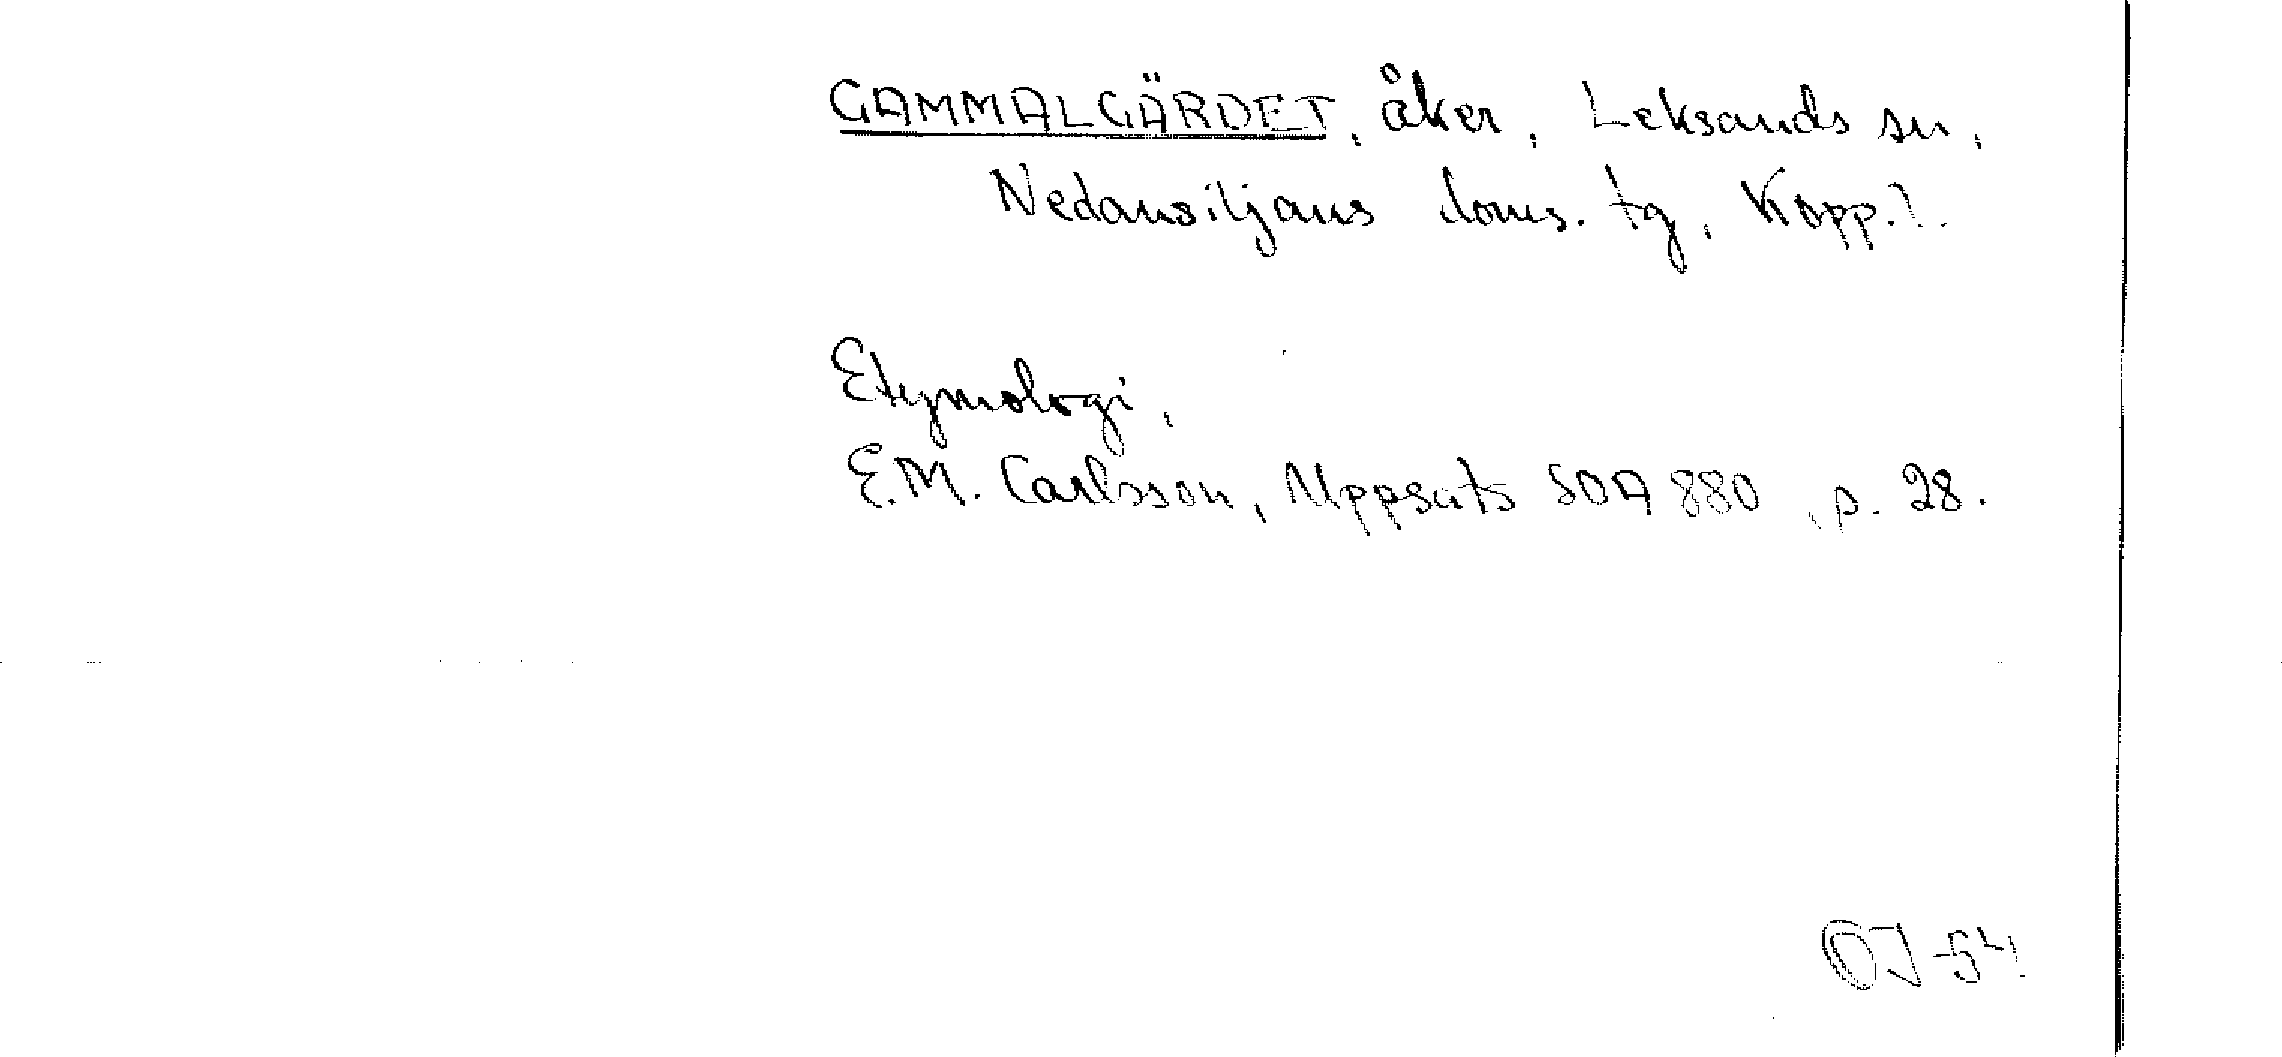 GAMMALGÄRDET, åker, Leksands sn,
Nedansiljans doms. tg, Kopp.l.
Etymologi,
E.M. Carlsson, Uppsats SOA 880, p. 28.
OJ-54